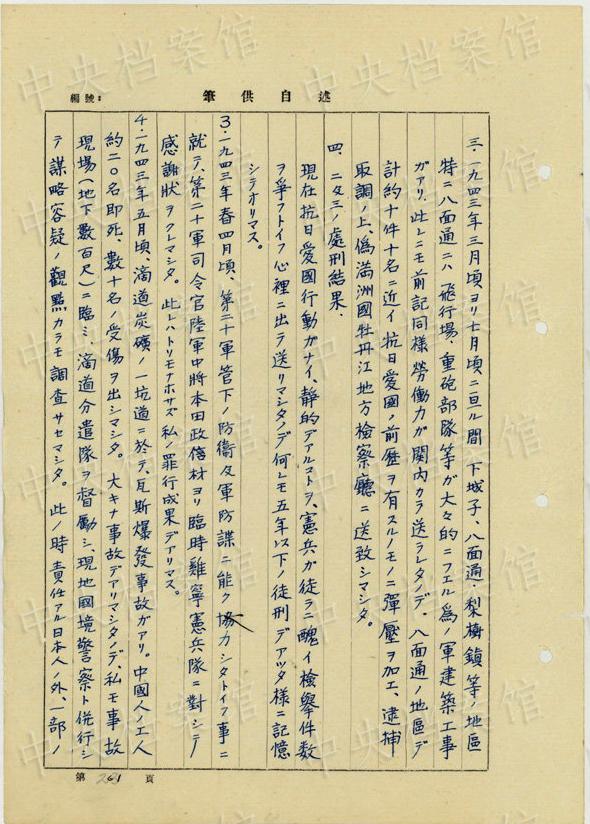 編號:
述自供筆
三.一九四三年三月頃ヨリ七月頃ニ亘ル間 下城子、八面通、梨樹鎮等ノ地區
特ニ八面通ニハ飛行場、重砲部隊等ガ大々的ニフエル爲ノ軍建築工事
ガアリ、此レニモ前記同樣勞働力ガ関内カラ送ラレタノデ、八面通ノ地區デ
計約十件十名ニ近イ抗日愛國ノ前歴ヲ有スルモノニ彈壓ヲ加エ、逮捕
取調ノ上、偽満洲國牡丹江地方檢察廳ニ送致シマシタ。
四、二及三ノ處刑結果、
現在抗日愛國行動ガナイ、静的デアルコトヲ、憲兵ガ徒ラニ醜イ檢舉件数
ヲ爭フトイフ心裡ニ出テ送リマシタノデ何レモ五年以下ノ徒刑デアツタ様ニ記憶
シテオリマス。
3.一九四三年春四月頃、第二十軍管下ノ防衛及軍防諜ニ能ク協力シタトイフ事ニ
就テ、第二十軍司令官陸軍中將本田政材ヨリ臨時雞寧憲兵隊ニ對シテ
感謝狀ヲクレマシタ。此レハトリモナホサズ私ノ罪行成果デアリマス。
4.一九四三年五月頃、滴道炭礦ノ一坑道ニ於テ、瓦斯爆發事故ガアリ。中國人ノ工人
約二〇名即死、数十名ノ受傷ヲ出シマシタ。大キナ事故デアリマシタノデ、私モ事故
現場(地下数百尺)ニ臨ミ、滴道分遣隊ヲ督勵シ、現地國境警察ト併行シ
テ謀略容疑ノ觀點カラモ調査サセマシタ。此ノ時責任アル日本人ノ外、一部ノ
第 261 頁
中央档案馆